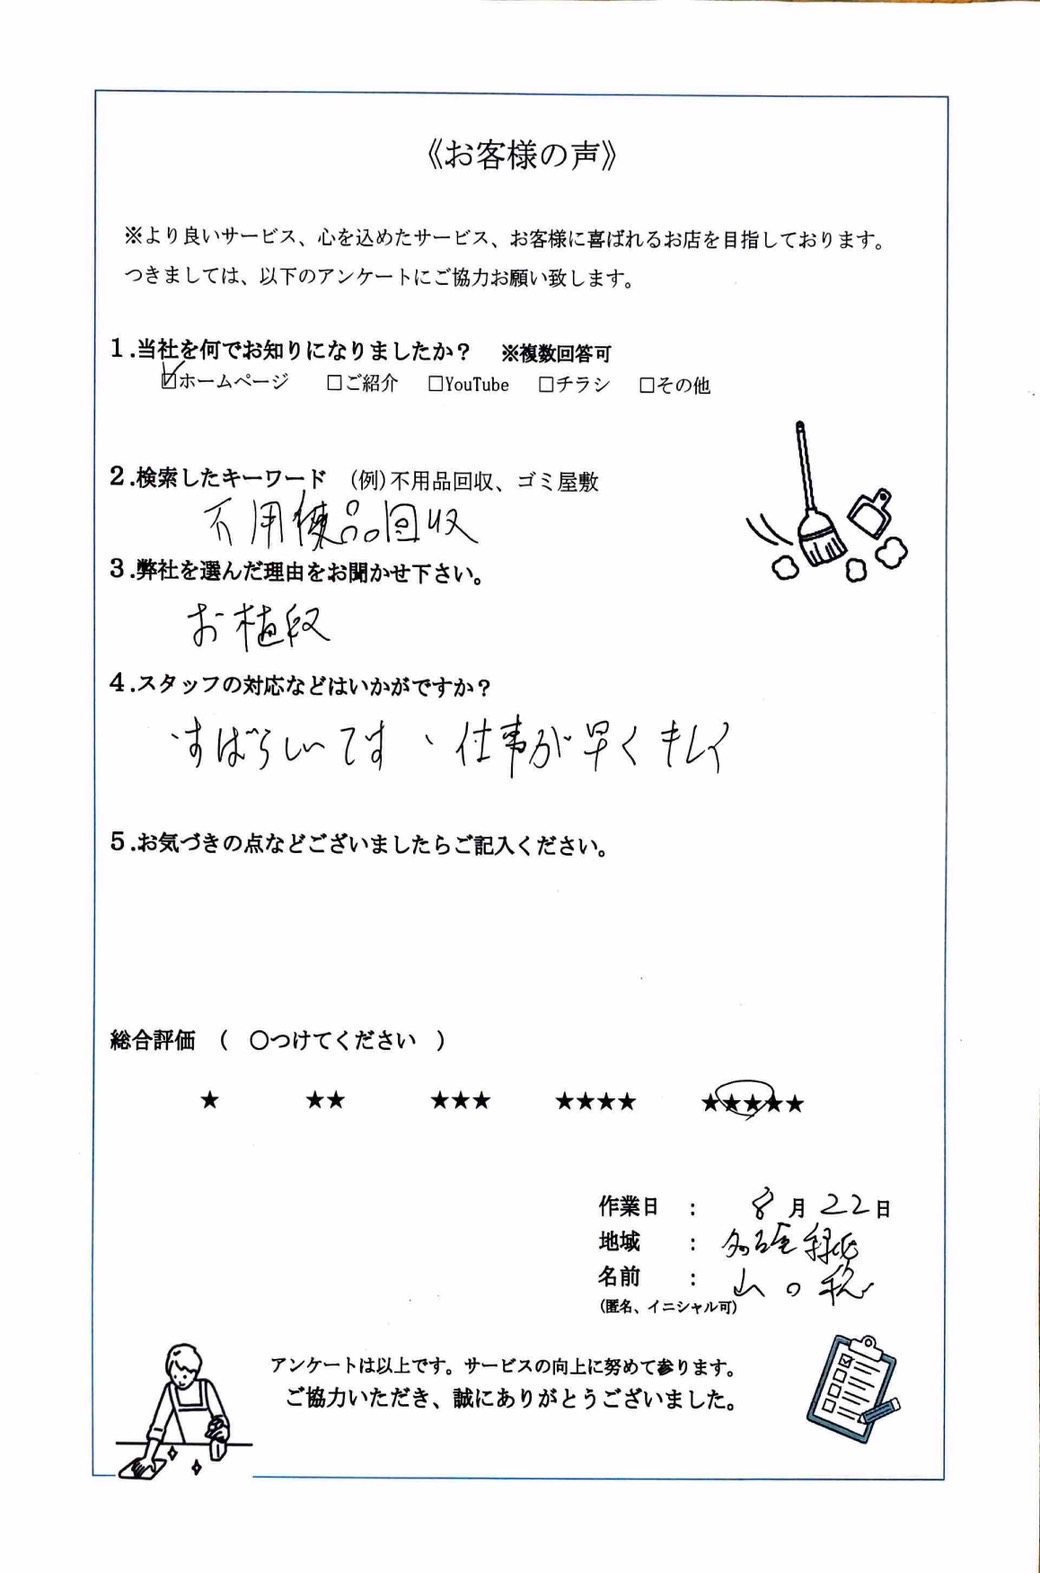 《お客様の声》
※より良いサービス、心を込めたサービス、お客様に喜ばれるお店を目指しております。
つきましては、以下のアンケートにご協力お願い致します。
1.当社を何でお知りになりましたか？ ※複数回答可
☑ホームページ □ご紹介 □YouTube □チラシ □その他
2.検索したキーワード (例)不用品回収、ゴミ屋敷
不用 品回収
3.弊社を選んだ理由をお聞かせ下さい。
お値段
4.スタッフの対応などはいかがですか？
すばらしいです、仕事が早くキレイ
5.お気づきの点などございましたらご記入ください。
総合評価 ( 〇つけてください )
★ ★★ ★★★ ★★★★ ★★★★★
作業日 : 8月22日
地域 : 名古屋緑区
名前 : 山の
(匿名、イニシャル可)
アンケートは以上です。サービスの向上に努めて参ります。
ご協力いただき、誠にありがとうございました。